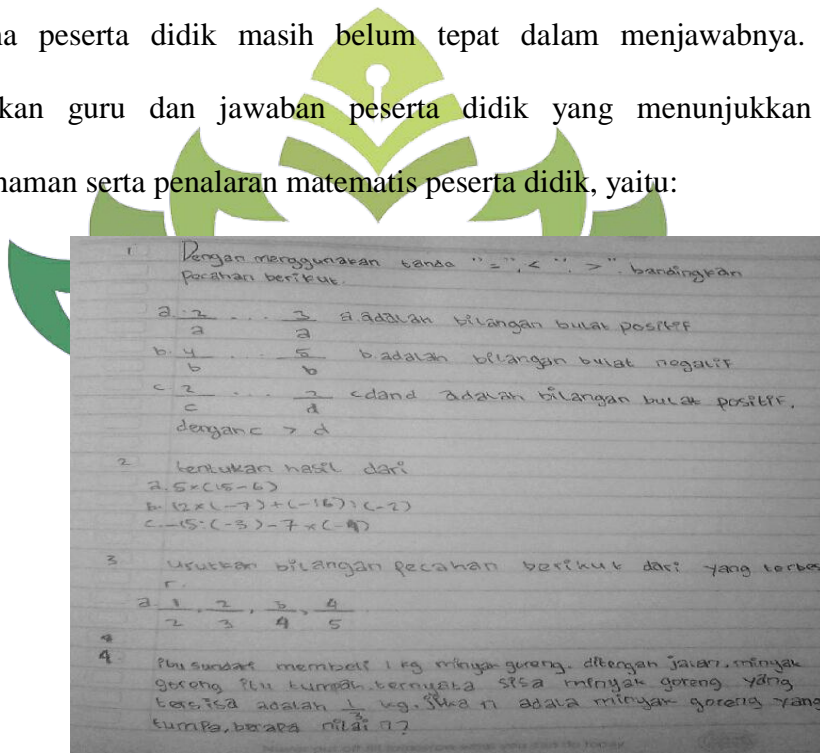 na peserta didik masih belum tepat dalam menjawabnya.
kan guru dan jawaban peserta didik yang menunjukkan
haman serta penalaran matematis peserta didik, yaitu:
1 Dengan menggunakan tanda "=", < ", > ". bandingkan
Pecahan berikut.
a. 2/a ... 3/a a. adalah bilangan bulat positif
b. 4/b ... 5/b b. adalah bilangan bulat negatif
c 2/c ... 2/d c dand adalah bilangan bulat positif,
dengan c > d
2 tentukan hasil dari
a. 5×(15-6)
b. (2×(-7)+(-16):(-2)
c. -15:(-3)-7×(-4)
3 Urutkan bilangan pecahan berikut dari yang terbes
r.
a 1/2, 2/3, 3/4, 4/5
4 Ibu sundari membeli 1 kg minyak goreng. ditengah jalan, minyak
goreng itu tumpah. ternyata sisa minyak goreng yang
tersisa adalah 1/3 kg. Jika n adala minyak goreng yang
tumpa, berapa nilai n?